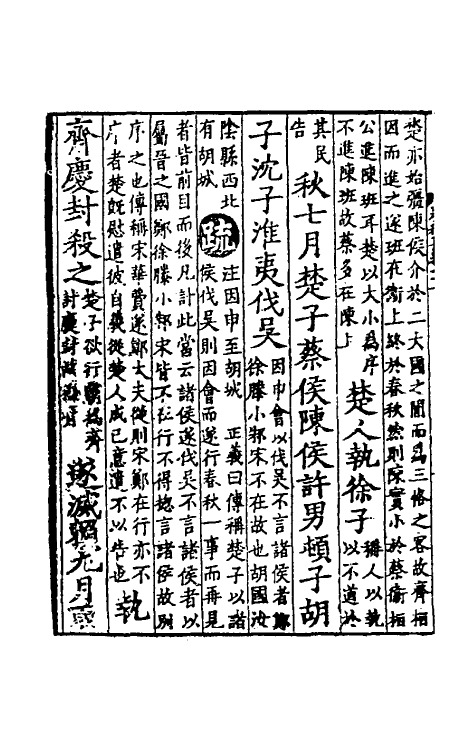 楚亦始彊陳侯介於二大國之閒而爲三恪之客故齊桓
因而進之遂班在衞上終於春秋然則陳實小於蔡衞桓
公進陳班耳楚以大小爲序
不進陳班故蔡多在陳上
楚人執徐子
稱人以執
以不道於
其民
告
秋七月楚子蔡侯陳侯許男頓子胡
子沈子淮夷伐吳
因申會以伐吳不言諸侯者鄭
徐滕小邾宋不在故也胡國汝
陰縣西北
有胡城
疏
注因申至胡城 正義曰傳稱楚子以諸
侯伐吳則因會而遂行春秋一事而再見
者皆前目而後凡計此當云諸侯遂伐吳不言諸侯者以
屬晉之國鄭徐滕小邾宋皆不在行不得揔言諸侯故別
序之也傳稱宋華費遂鄭大夫從則宋鄭在行亦不
序者楚旣慰遣彼自義從楚人咸已意遣不以告也
執
齊慶封殺之
楚子欲行霸爲齊
討慶封故稱齊
遂滅賴九月取